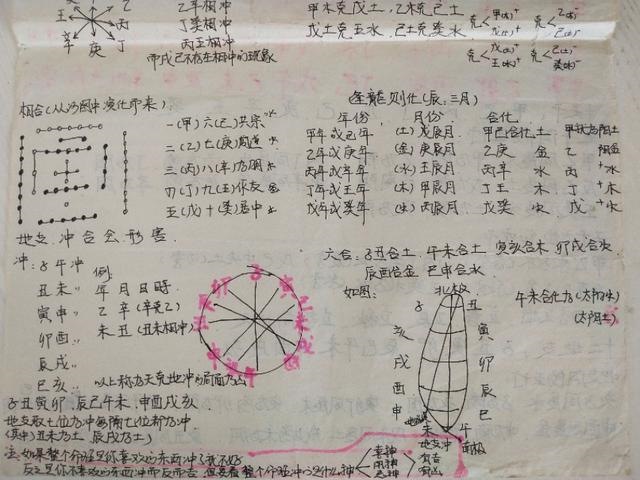 乙年相冲
丁癸相冲
丙壬相冲
而戊己不存在相冲的现象
壬 丙
辛 庚 丁
甲木克戊土,乙木克己土
戊土克壬水,己土克癸水
克 甲(木)+ 戊(土)+ 克 乙(木)- 己(土)-
克 戊(土)+ 壬(水)+ 克 己(土)- 癸(水)-
相合(从河图中演化带来)
一(甲)六(己)共宗 水
二(乙)七(庚)同道 火
三(丙)八(辛)为朋 木
四(丁)九(壬)作友 金
五(戊)十(癸)居中 土
逢龍则化(辰:三月)
年份 月份 合化
甲年或己年 (土)戊辰月 甲己合化土 甲软为阳土
乙年或庚年 (金)庚辰月 乙庚 金 乙 阴金
丙年或辛年 (水)壬辰月 丙辛 水 丙 +水
丁年或壬年 (木)甲辰月 丁壬 木 丁 -木
戊年或癸年 (火)丙辰月 戊癸 火 戊 +火
地支.冲合会.形害.
冲:子午冲 例:
丑未〃 年月日时.
寅申〃 乙辛(辛克乙)
卯酉〃 未丑(丑未相冲)
辰戌〃
巳亥〃 以上称为天克地冲的局面为凶
子丑寅卯.辰巳午未.申酉戌亥.
地支取七位为冲每隔七位新为冲
(其中)丑未为土 辰戌为土)
注:如果整个命理是你喜欢的东西冲了就不好
六合:子丑合土.午未合土 寅亥合木 卯戌合火
辰酉合金 巳申合水.
如图: 北极
子 丑
亥 寅
戌 卯
酉 辰
申 巳
未 午
地支冲 南极
有吉
有凶
午未合化为(太阳火)
(太阴土)
喜神
用神
忌神